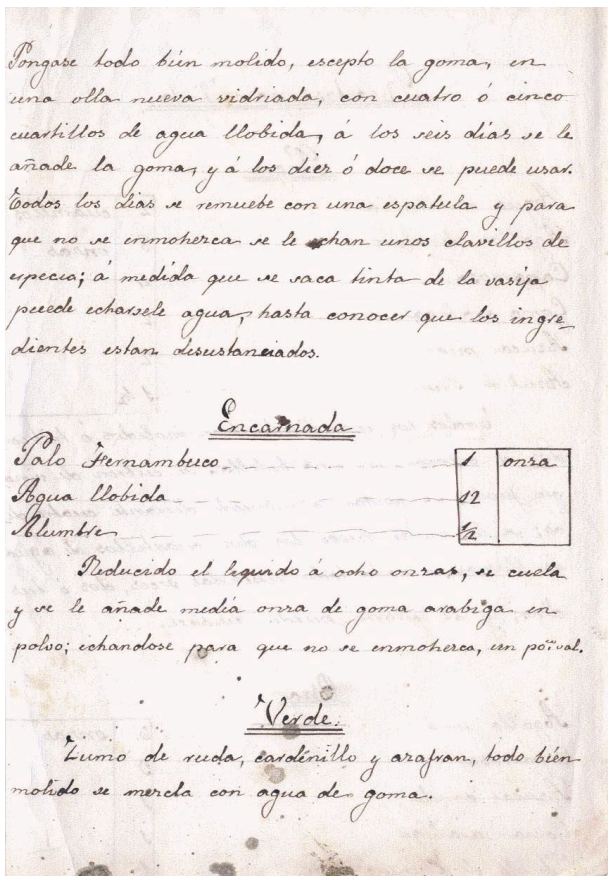 Pongase todo bién molido, escepto la goma, en
una olla nueva vidriada, con cuatro ó cinco
cuartillos de agua llobida, á los seis días se le
añade la goma, y á los diez ó doce se puede usar.
Todos los dias se remuebe con una espatula y para
que no se enmohezca se le echan unos clavillos de
especia; á medida que se saca tinta de la vasija
puede echarsele agua, hasta conocer que los ingre-
dientes estan disustanciados.
Encarnada
Palo Fernambuco 1 onza
Agua llobida 12
Alumbre ½
Reducido el liquido á ocho onzas, se cuela
y se le añade media onza de goma arabiga en
polvo; echandose para que no se enmohezca, un po
Verde.
Zumo de ruda, cardenillo y azafran, todo bién
molido se mezcla con agua de goma.